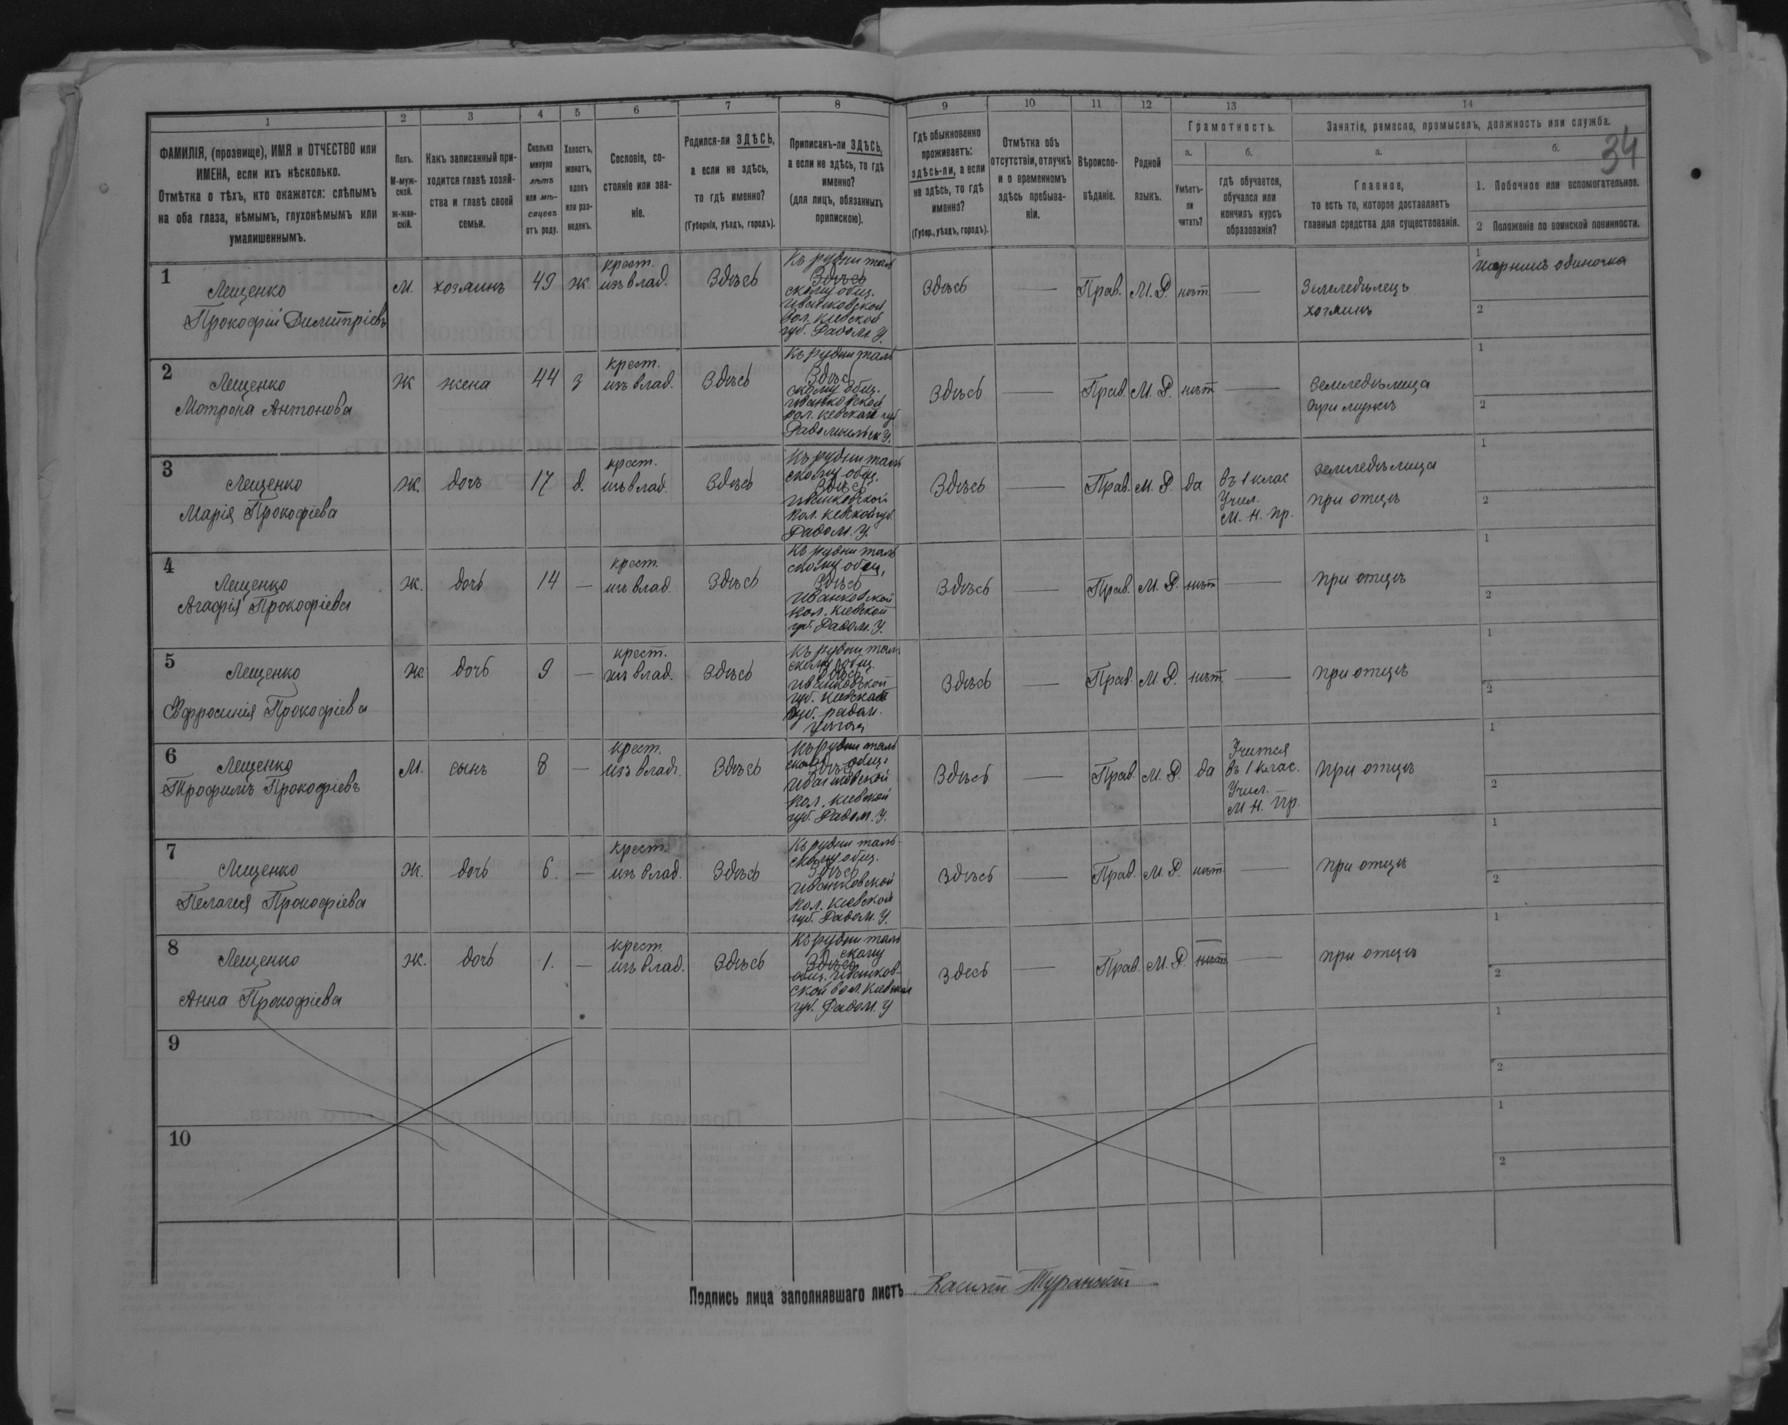 1 2 3 4 5 6 7 8 9 10 11 12 13 14
34
ФАМИЛІЯ, (прозвище), ИМЯ и ОТЧЕСТВО или
ИМЕНА, если ихъ нѣсколько.
Отмѣтка о тѣхъ, кто окажется: слѣпымъ
на оба глаза, нѣмымъ, глухонѣмымъ или
умалишеннымъ.
Полъ.
М-муж-
ской.
ж-жен-
скій.
Какъ записанный при-
ходится главѣ хозяй-
ства и главѣ своей
семьи.
Сколько
минуло
лѣтъ
или мѣ-
сяцевъ
отъ роду.
Холостъ,
женатъ,
вдовъ
или раз-
веденъ.
Сословіе, со-
стояніе или зва-
ніе.
Родился-ли ЗДѢСЬ,
а если не здѣсь,
то гдѣ именно?
(Губернія, уѣздъ, городъ).
Приписанъ-ли ЗДѢСЬ,
а если не здѣсь, то гдѣ
именно?
(для лицъ, обязанныхъ
припискою).
Гдѣ обыкновенно
проживаетъ:
здѣсь-ли, а если
не здѣсь, то гдѣ
именно?
(Губер., уѣздъ, городъ).
Отмѣтка объ
отсутствіи, отлучкѣ
и о временномъ
здѣсь пребыва-
ніи.
Вѣроиспо-
вѣданіе.
Родной
языкъ.
Грамотность.
а.
Умѣетъ-
ли
читать?
б.
гдѣ обучается,
обучался или
кончилъ курсъ
образованія?
Занятіе, ремесло, промыселъ, должность или служба.
а.
Главное,
то есть то, которое доставляетъ
главныя средства для существованія.
б.
1. Побочное или вспомогательное.
2 Положеніе по воинской повинности.
1
Лещенко
Прокофій Димитріевъ
М. хозяинъ 49 ж
крест.
изъ влад.
Здѣсь
Къ рудни таль
Здѣсь
скому общ.
Иванковской
вол. Кіевской
губ. Радом. У.
Здѣсь — Прав. М. Р. нѣт —
Земледѣлецъ
хозяинъ
1
одиночка
2
2
Лещенко
Мотрона Антонова
Ж жена 44 з
крест.
изъ влад.
Здѣсь
Къ рудни таль
Здѣсь
скому общ.
Иванковской
вол. Кіевской губ
У.
Здѣсь — Прав. М. Р. нѣт —
Земледѣлица
при мужѣ
1
2
3
Лещенко
Марія Прокофіева
Ж. дочъ 17 д.
крест.
изъ влад.
Здѣсь
Къ рудни таль
скому общ.
Здѣсь
Иванковской
вол. губ.
Радом. У.
Здѣсь — Прав. М. Р. да
въ 1 клас
Учил.
М. Н. Пр.
земледѣлица
при отцѣ
1
2
4
Лещенко
Агафія Прокофіева
Ж. дочь 14 —
крест.
изъ влад.
Здѣсь
Къ рудни таль
скому общ.
Здѣсь
Иванковской
вол. Кіевской
губ. Радом. У.
Здѣсь — Прав. М. Р. нѣт —
при отцѣ
1
2
5
Лещенко
Ефросинія Прокофіева
Ж дочь 9 —
крест.
изъ влад.
Здѣсь
Къ рудни таль
скому общ.
Здѣсь
Иванковской
губ.
Здѣсь — Прав. М. Р. нѣт —
при отцѣ
1
2
6
Лещенко
Трофимъ Прокофіевъ
М. сынъ 8 —
крест.
изъ влад.
Здѣсь
Къ рудни таль
скому общ.
Здѣсь
Иванковской
вол. Кіевской
губ. Радом. У.
Здѣсь — Прав. М. Р. да
Учится
въ 1 клас.
Учил.
М. Н. Пр.
при отцѣ
1
2
7
Лещенко
Пелагея Прокофіева
Ж. дочь 6. —
крест.
изъ влад.
Здѣсь
Къ рудни таль-
скому общ.
Здѣсь
Иванковской
вол. Кіевской
губ. Радом. У.
Здѣсь — Прав. М. Р. нѣт —
при отцѣ
1
2
8
Лещенко
Анна Прокофіева
Ж. дочь 1. —
крест.
изъ влад.
Здѣсь
Къ рудни таль
скому
Здѣсь
общ. Иванков-
ской вол.
губ. Радом. У
Здесь — Прав. М. Р. нѣт —
при отцѣ
1
2
9
1
2
10
1
2
Подпись лица заполнявшаго листъ